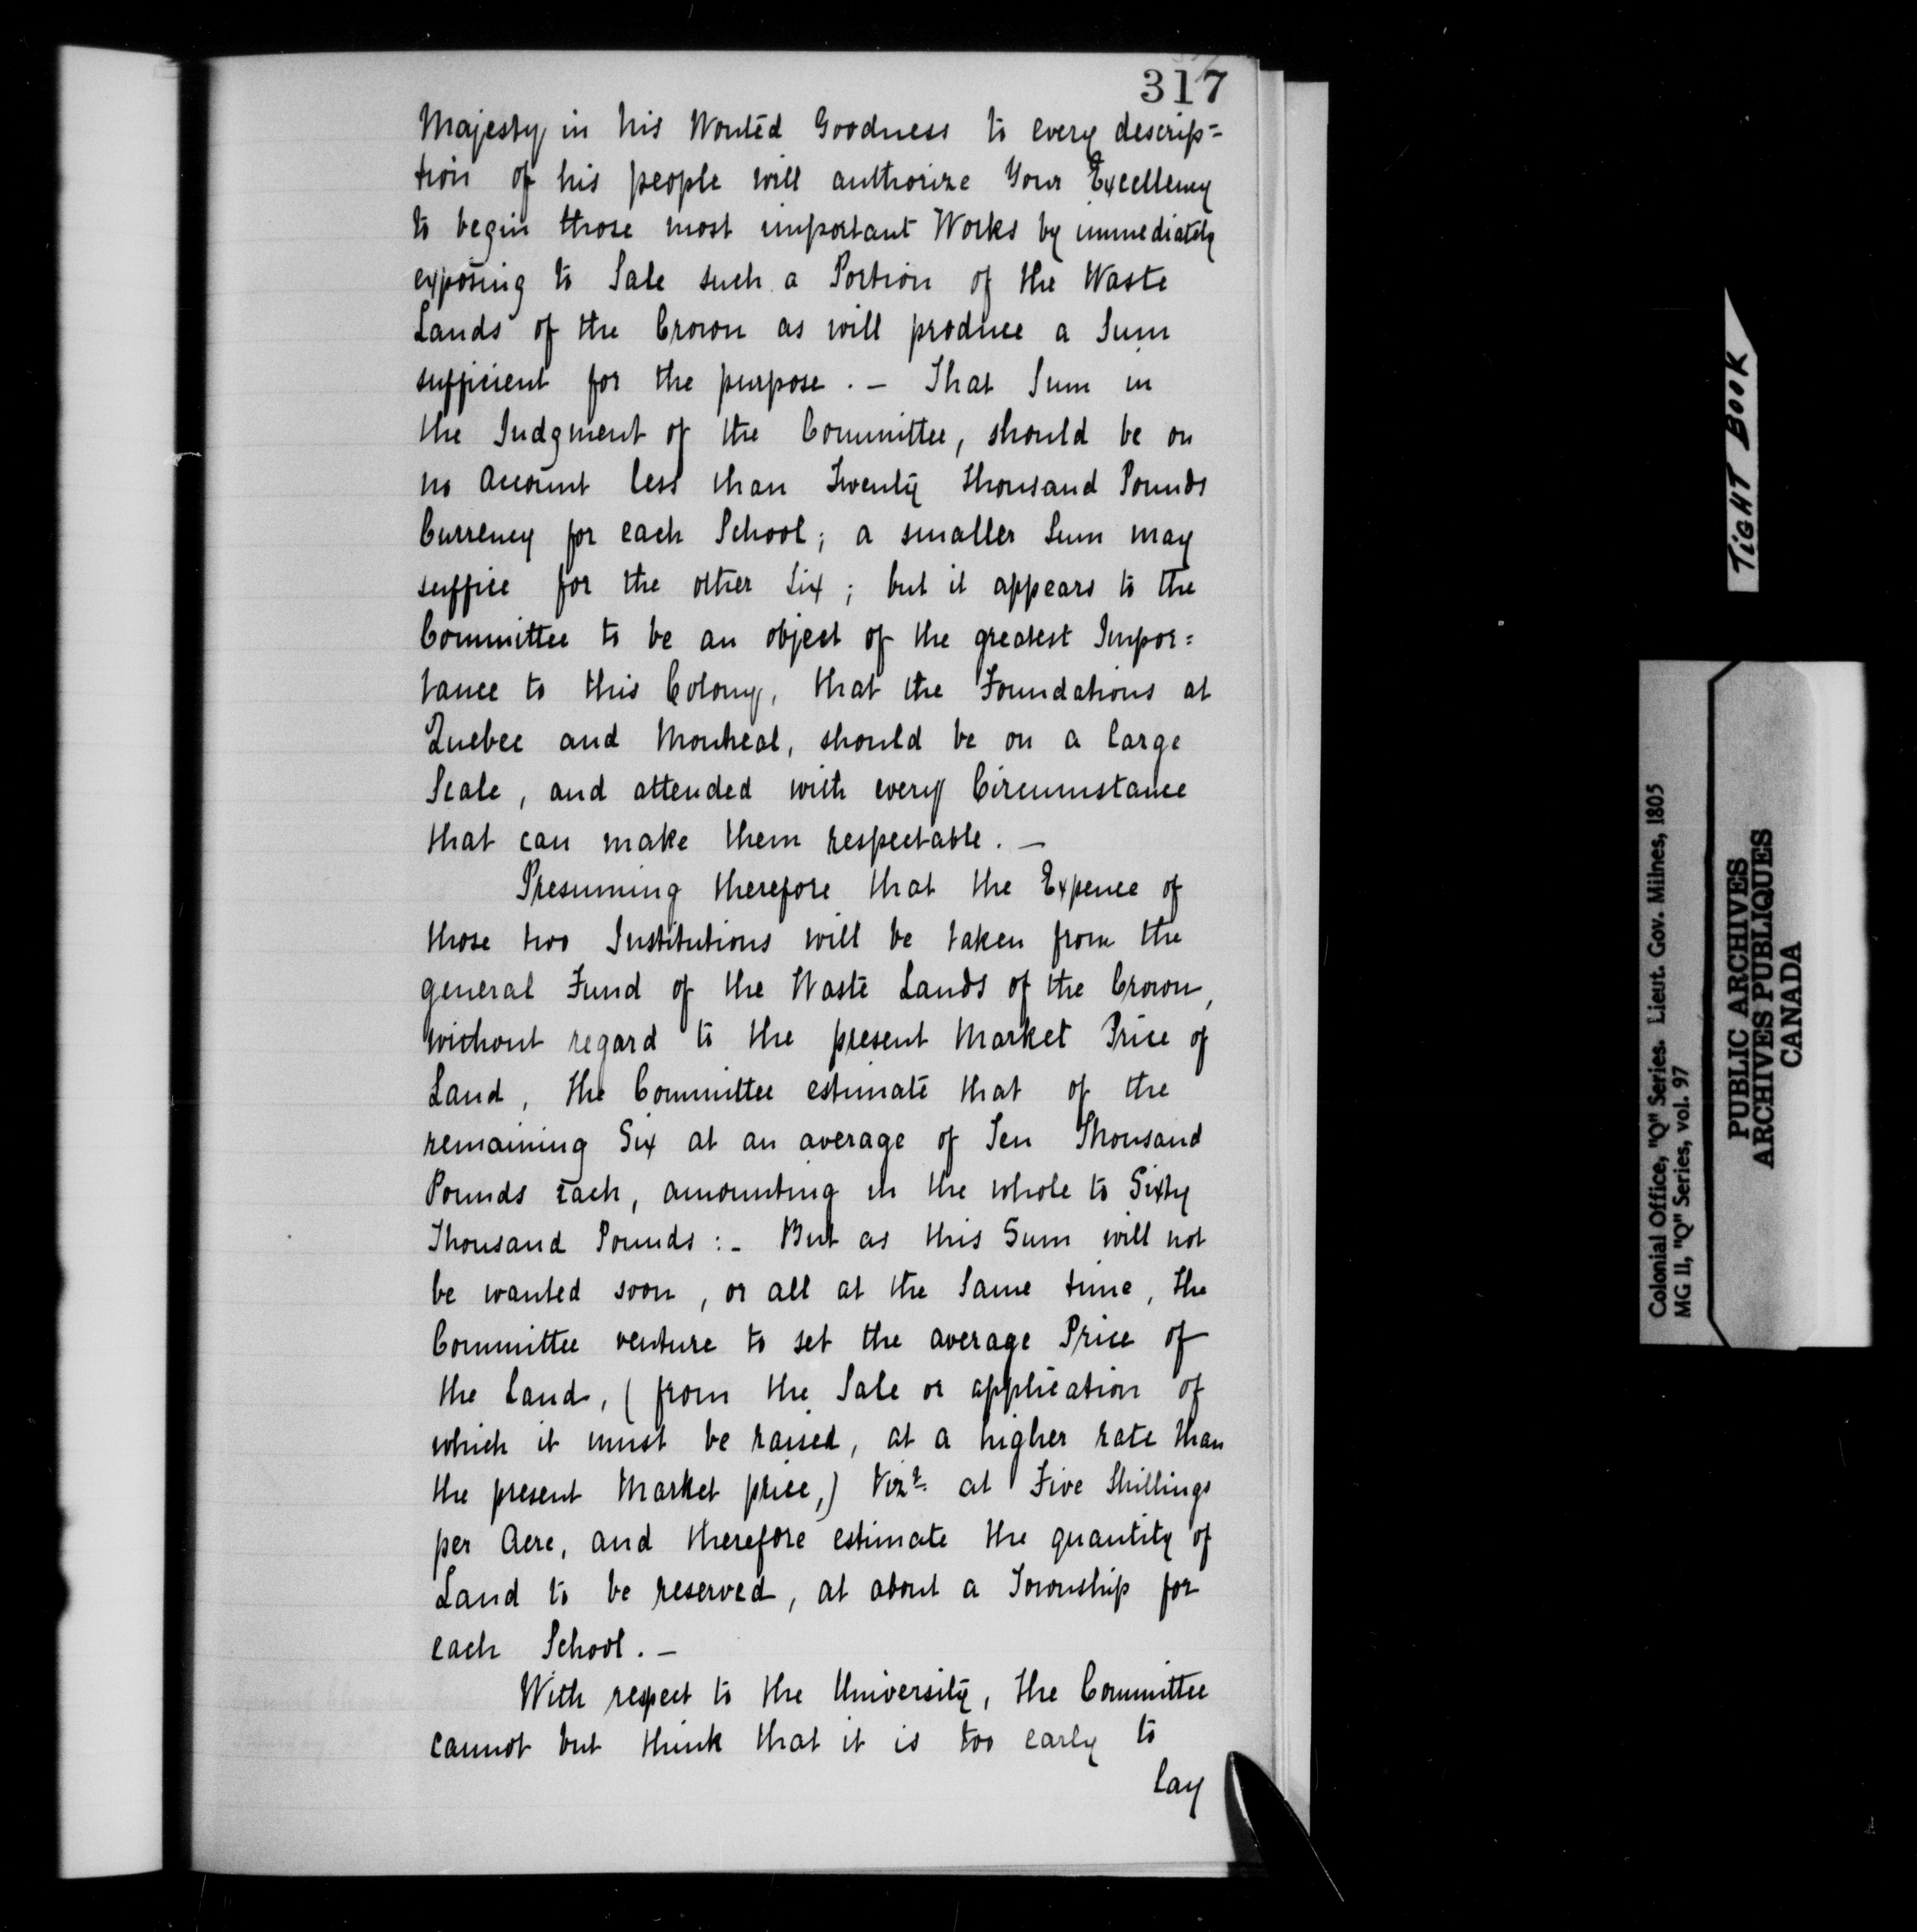 317
Majesty in his Wonted Goodness to every descrip=
tion of his people will authorize Your Excellency
to begin those most important Works by immediately
exposing to Sale such a Portion of the Waste
Lands of the Crown as will produce a Sum
sufficient for the purpose. — That Sum in
the Judgment of the Committee, should be on
no Account less than Twenty Thousand Pounds
Currency for each School; a smaller Sum may
suffice for the other Six; but it appears to the
Committee to be an object of the greatest Impor=
tance to this Colony, that the Foundations at
Quebec and Montreal, should be on a large
Scale, and attended with every Circumstance
that can make them respectable. —
Presuming therefore that the Expence of
those two Institutions will be taken from the
general Fund of the Waste Lands of the Crown,
without regard to the present Market Price of
Land, the Committee estimate that of the
remaining Six at an average of Ten Thousand
Pounds each, amounting in the whole to Sixty
Thousand Pounds :- But as this Sum will not
be wanted soon, or all at the same time, the
Committee venture to set the average Price of
the Land, (from the Sale or application of
which it must be raised, at a higher rate than
the present Market price,) Vizt. at Five Shillings
per Acre, and therefore estimate the quantity of
Land to be reserved, at about a Township for
each School. —
With respect to the University, the Committee
cannot but think that it is too early to
lay
TIGHT BOOK
Colonial Office, "Q" Series. Lieut. Gov. Milnes, 1805
MG 11, "Q" Series, vol. 97
PUBLIC ARCHIVES
ARCHIVES PUBLIQUES
CANADA